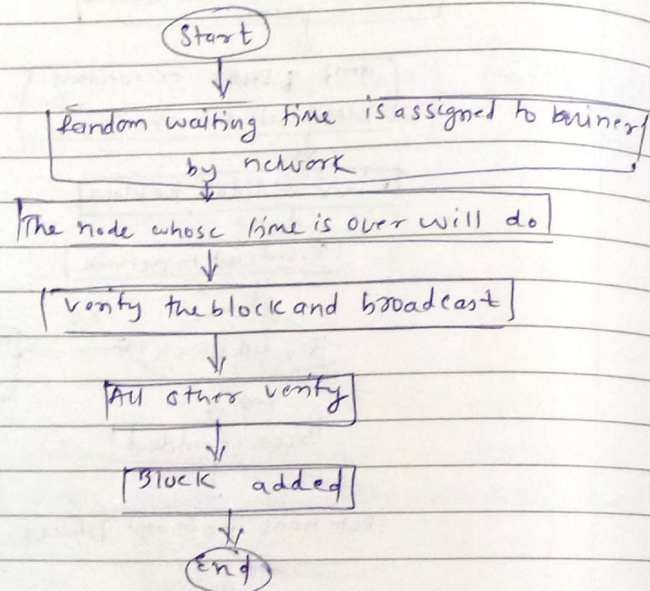 Start
Random waiting time is assigned to
by network
The node whose time is over will do
Verify the block and broadcast
All other verify
Block added
End